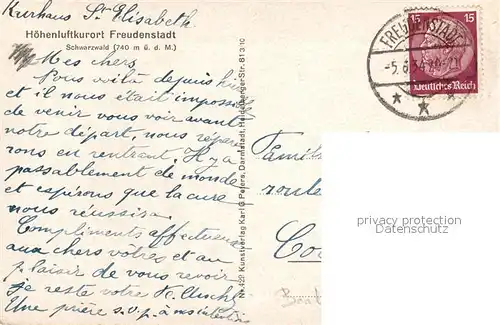 Kurhaus St Elisabeth
Höhenluftkurort Freudenstadt
Schwarzwald (740 m ü. d. M.)
Mes chers
Vous voilà depuis hier
et il nous était impossible
de venir vous voir avant
notre départ, nous répare-
rons en rentrant. Il y a
passablement de monde
et espérons que la cure
nous réussira.
Compliments affectueux
aux chers vôtres et au
plaisir de vous revoir
je reste votre
Une prière s.v.p. à
No. 420 Kunstverlag Karl G. Peters, Darmstadt, Heidelberger-Str. 81 3/10
15 15
Deutsches Reich
FREUDENSTADT
-5.6.34
Famil
route
privacy protection
Datenschutz